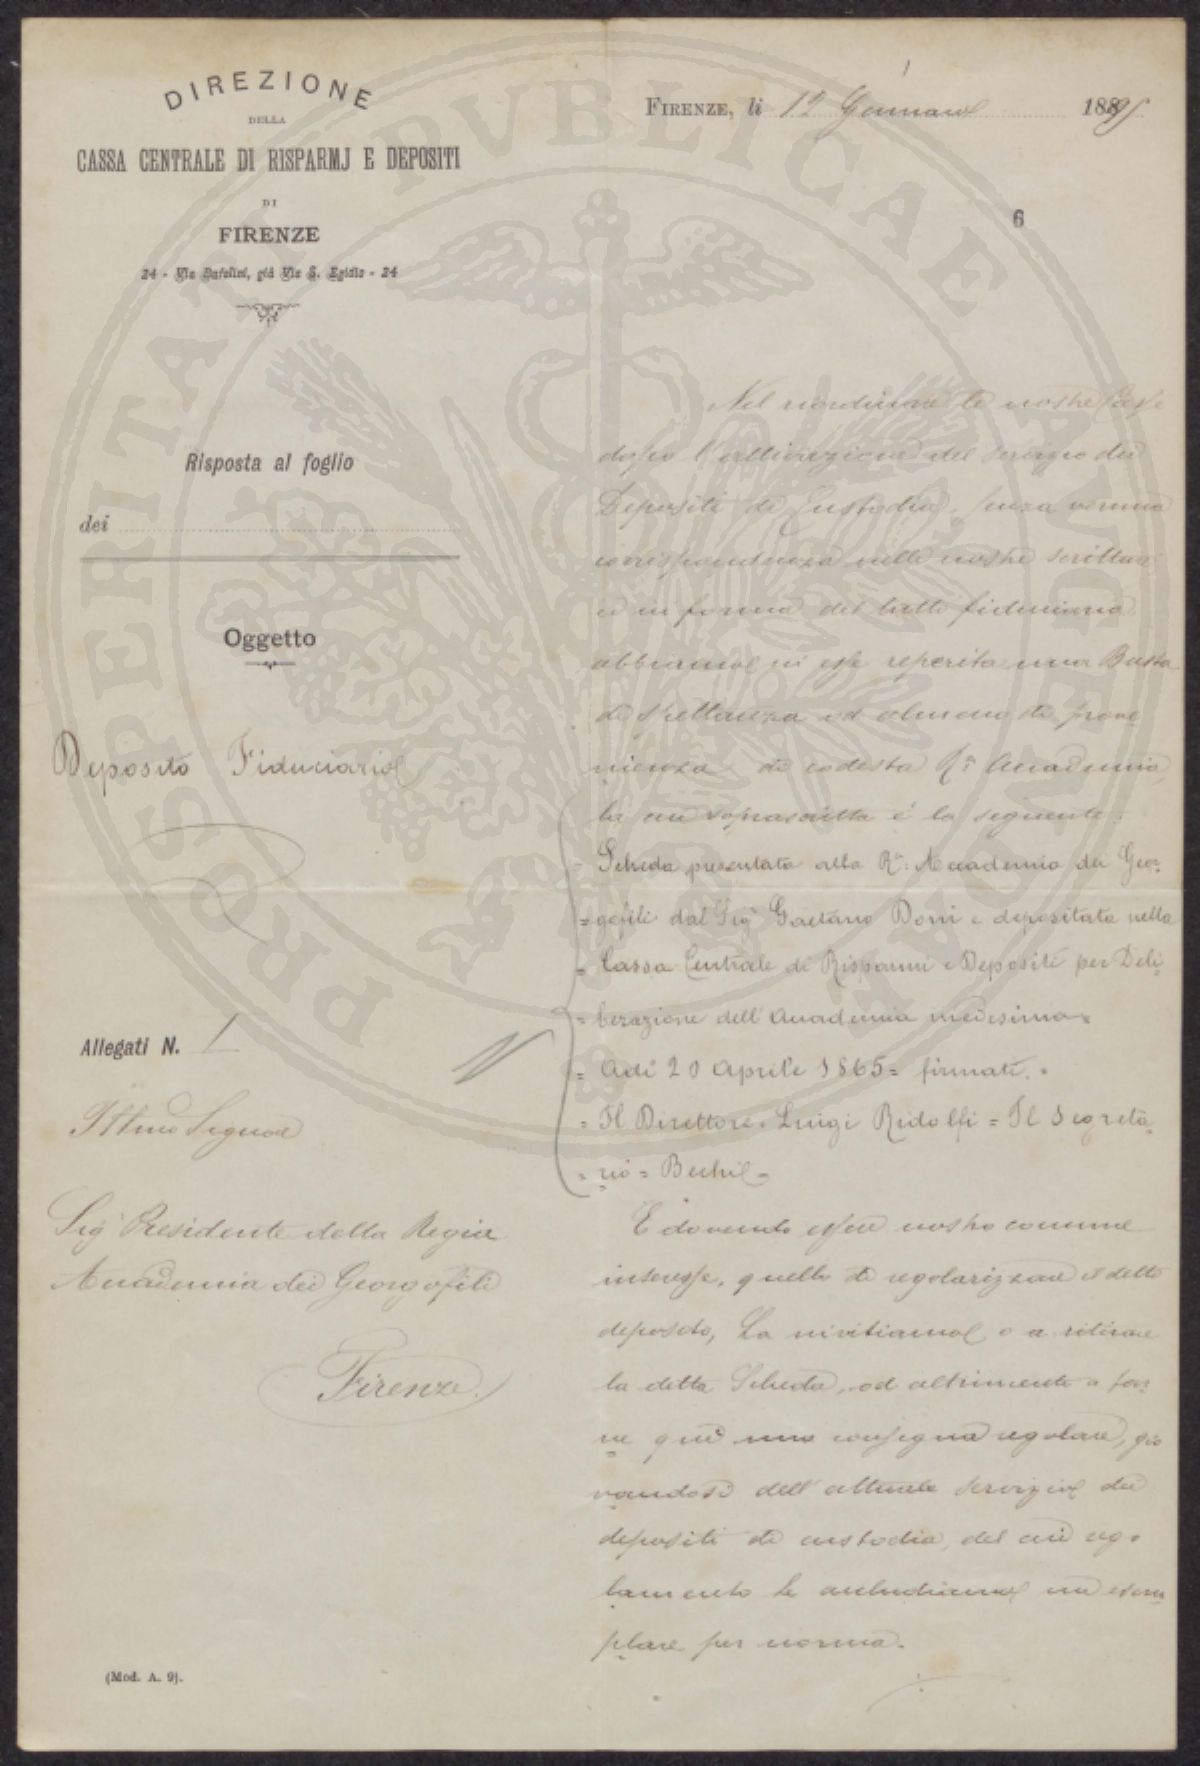 DIREZIONE
DELLA
CASSA CENTRALE DI RISPARMJ E DEPOSITI
DI
FIRENZE
24 - Via Bufalini, già Via S. Egidio - 24
FIRENZE, li 12 Gennaio 1889
6
Risposta al foglio
dei
Oggetto
Deposito Fiduciario
Allegati N. 1
Illmo Signor
Sig Presidente della Regia
Accademia dei Georgofili
Firenze
(Mod. A. 9).
Nel riordinare le nostre Casse
dopo l'attivazione del servizio dei
Depositi di Custodia, senza veruna
corrispondenza nelle nostre scritture
ed in forma del tutto fiduciaria
abbiamo in esse reperita una Busta
di spettanza od almeno di prove
nienza di codesta Rª Accademia,
la cui soprascritta è la seguente:
= Scheda presentata alla R: Accademia dei Geor=
= gofili dal Sig Gaetano Doni e depositata nella
= Cassa Centrale di Risparmi e Depositi per Deli=
= berazione dell'Accademia medesima =
= Adì 20 Aprile 1865 = firmati =
= Il Direttore = Luigi Ridolfi = Il Segreta=
= rio = =
E dovendo essere nostro comune
interesse, quello di regolarizzare il detto
deposito, La invitiamo o a ritirare
la detta Scheda, od altrimenti a far=
ne quì una consegna regolare, gio
vandosi dell'attuale servizio dei
depositi di custodia, del cui reg=
lamento le accludiamo un esem
plare per norma.
PROSPERITATI PVBLICAE AVGENDAE